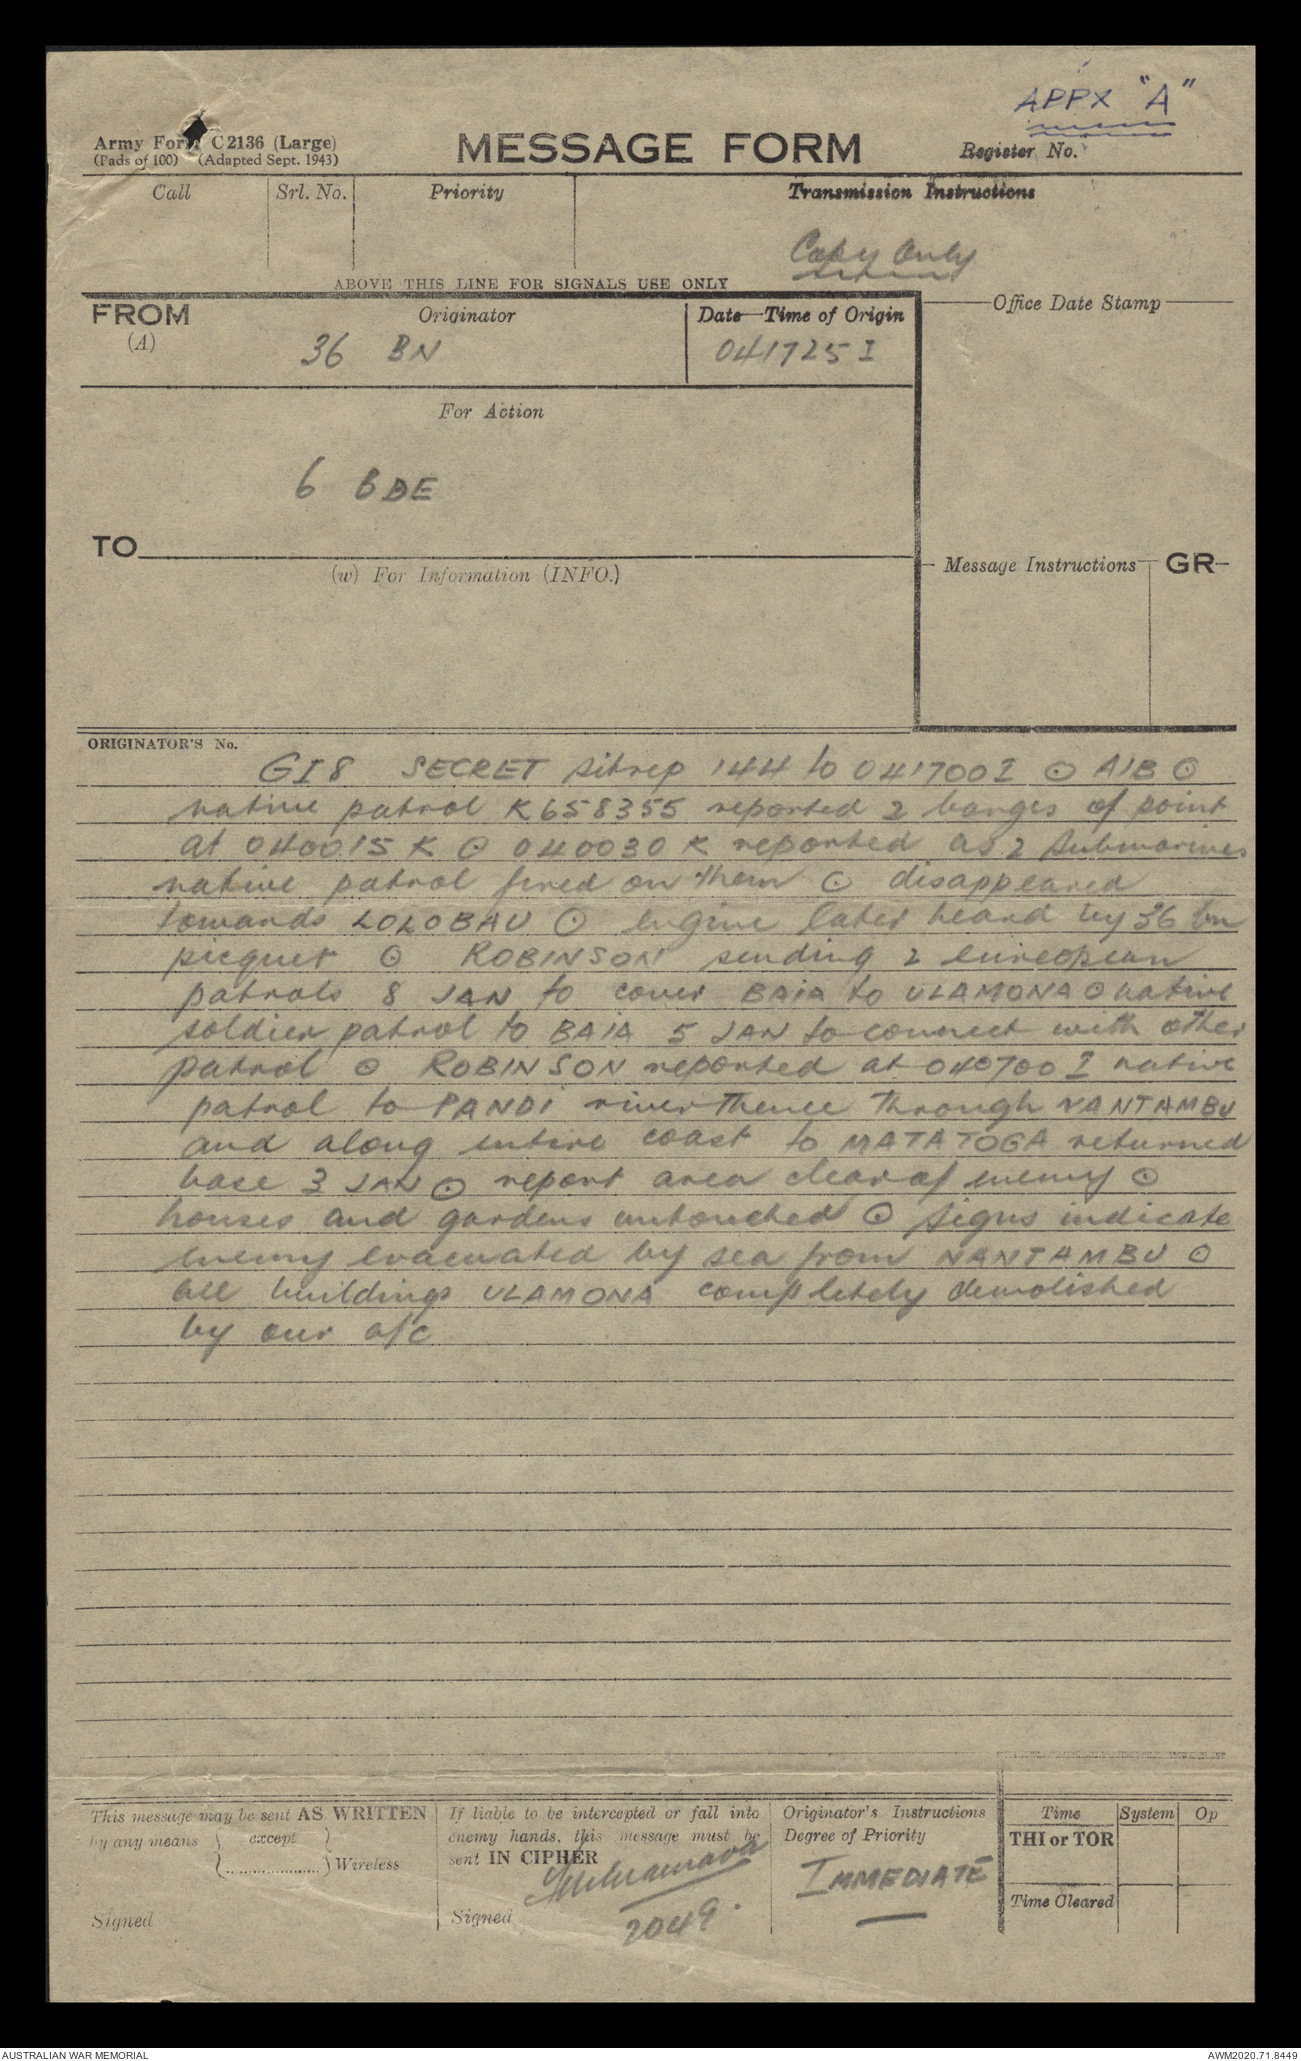 APPX "A"
Army Form C2136 (Large)
(Pads of 100) (Adapted Sept. 1943)
MESSAGE FORM
Register No.
Call
Srl. No.
Priority
Transmission Instructions
Copy Only
ABOVE THIS LINE FOR SIGNALS USE ONLY
FROM
(A)
Originator
36 BN
Date—Time of Origin
041725 I
Office Date Stamp
For Action
6 BDE
TO
(w) For Information (INFO.)
Message Instructions
GR
ORIGINATOR'S No.
GI8 SECRET sitrep 144 to 041700I ⊙ AIB ⊙
native patrol K658355 reported 2 barges of point
at 040015 K ⊙ 040030 K reported as 2 submarines
native patrol fired on them ⊙ disappeared
towards LOLOBAU ⊙ engine later heard by 36 bn
picquet ⊙ ROBINSON sending 2 european
patrols 8 JAN to cover BAIA to ULAMONA ⊙ native
soldier patrol to BAIA 5 JAN to connect with other
patrol ⊙ ROBINSON reported at 040700 I native
patrol to PANDI river thence through NANTAMBU
and along entire coast to MATATOGA returned
base 3 JAN ⊙ report area clear of enemy ⊙
houses and gardens untouched ⊙ signs indicate
enemy evacuated by sea from NANTAMBU ⊙
all buildings ULAMONA completely demolished
by our a/c
This message may be sent AS WRITTEN
by any means { except } Wireless
Signed
If liable to be intercepted or fall into
enemy hands, this message must be
sent IN CIPHER
Signed
2049.
Originator's Instructions
Degree of Priority
IMMEDIATE
Time
System
Op
THI or TOR
Time Cleared
AUSTRALIAN WAR MEMORIAL
AWM2020.71.8449